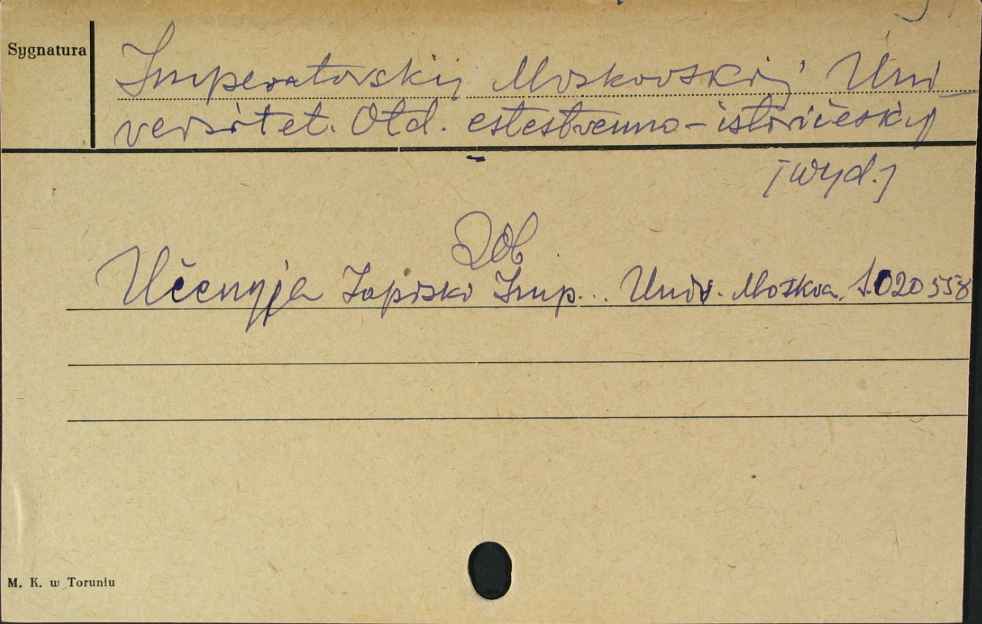 Sygnatura
Imperatorskij Moskovskij Uni-
versitet. Otd. estestvenno-istoričeskij
[wyd.]
Dob
Učenyja Zapiski Imp... Univ. Moskva. 020558
M. K. w Toruniu